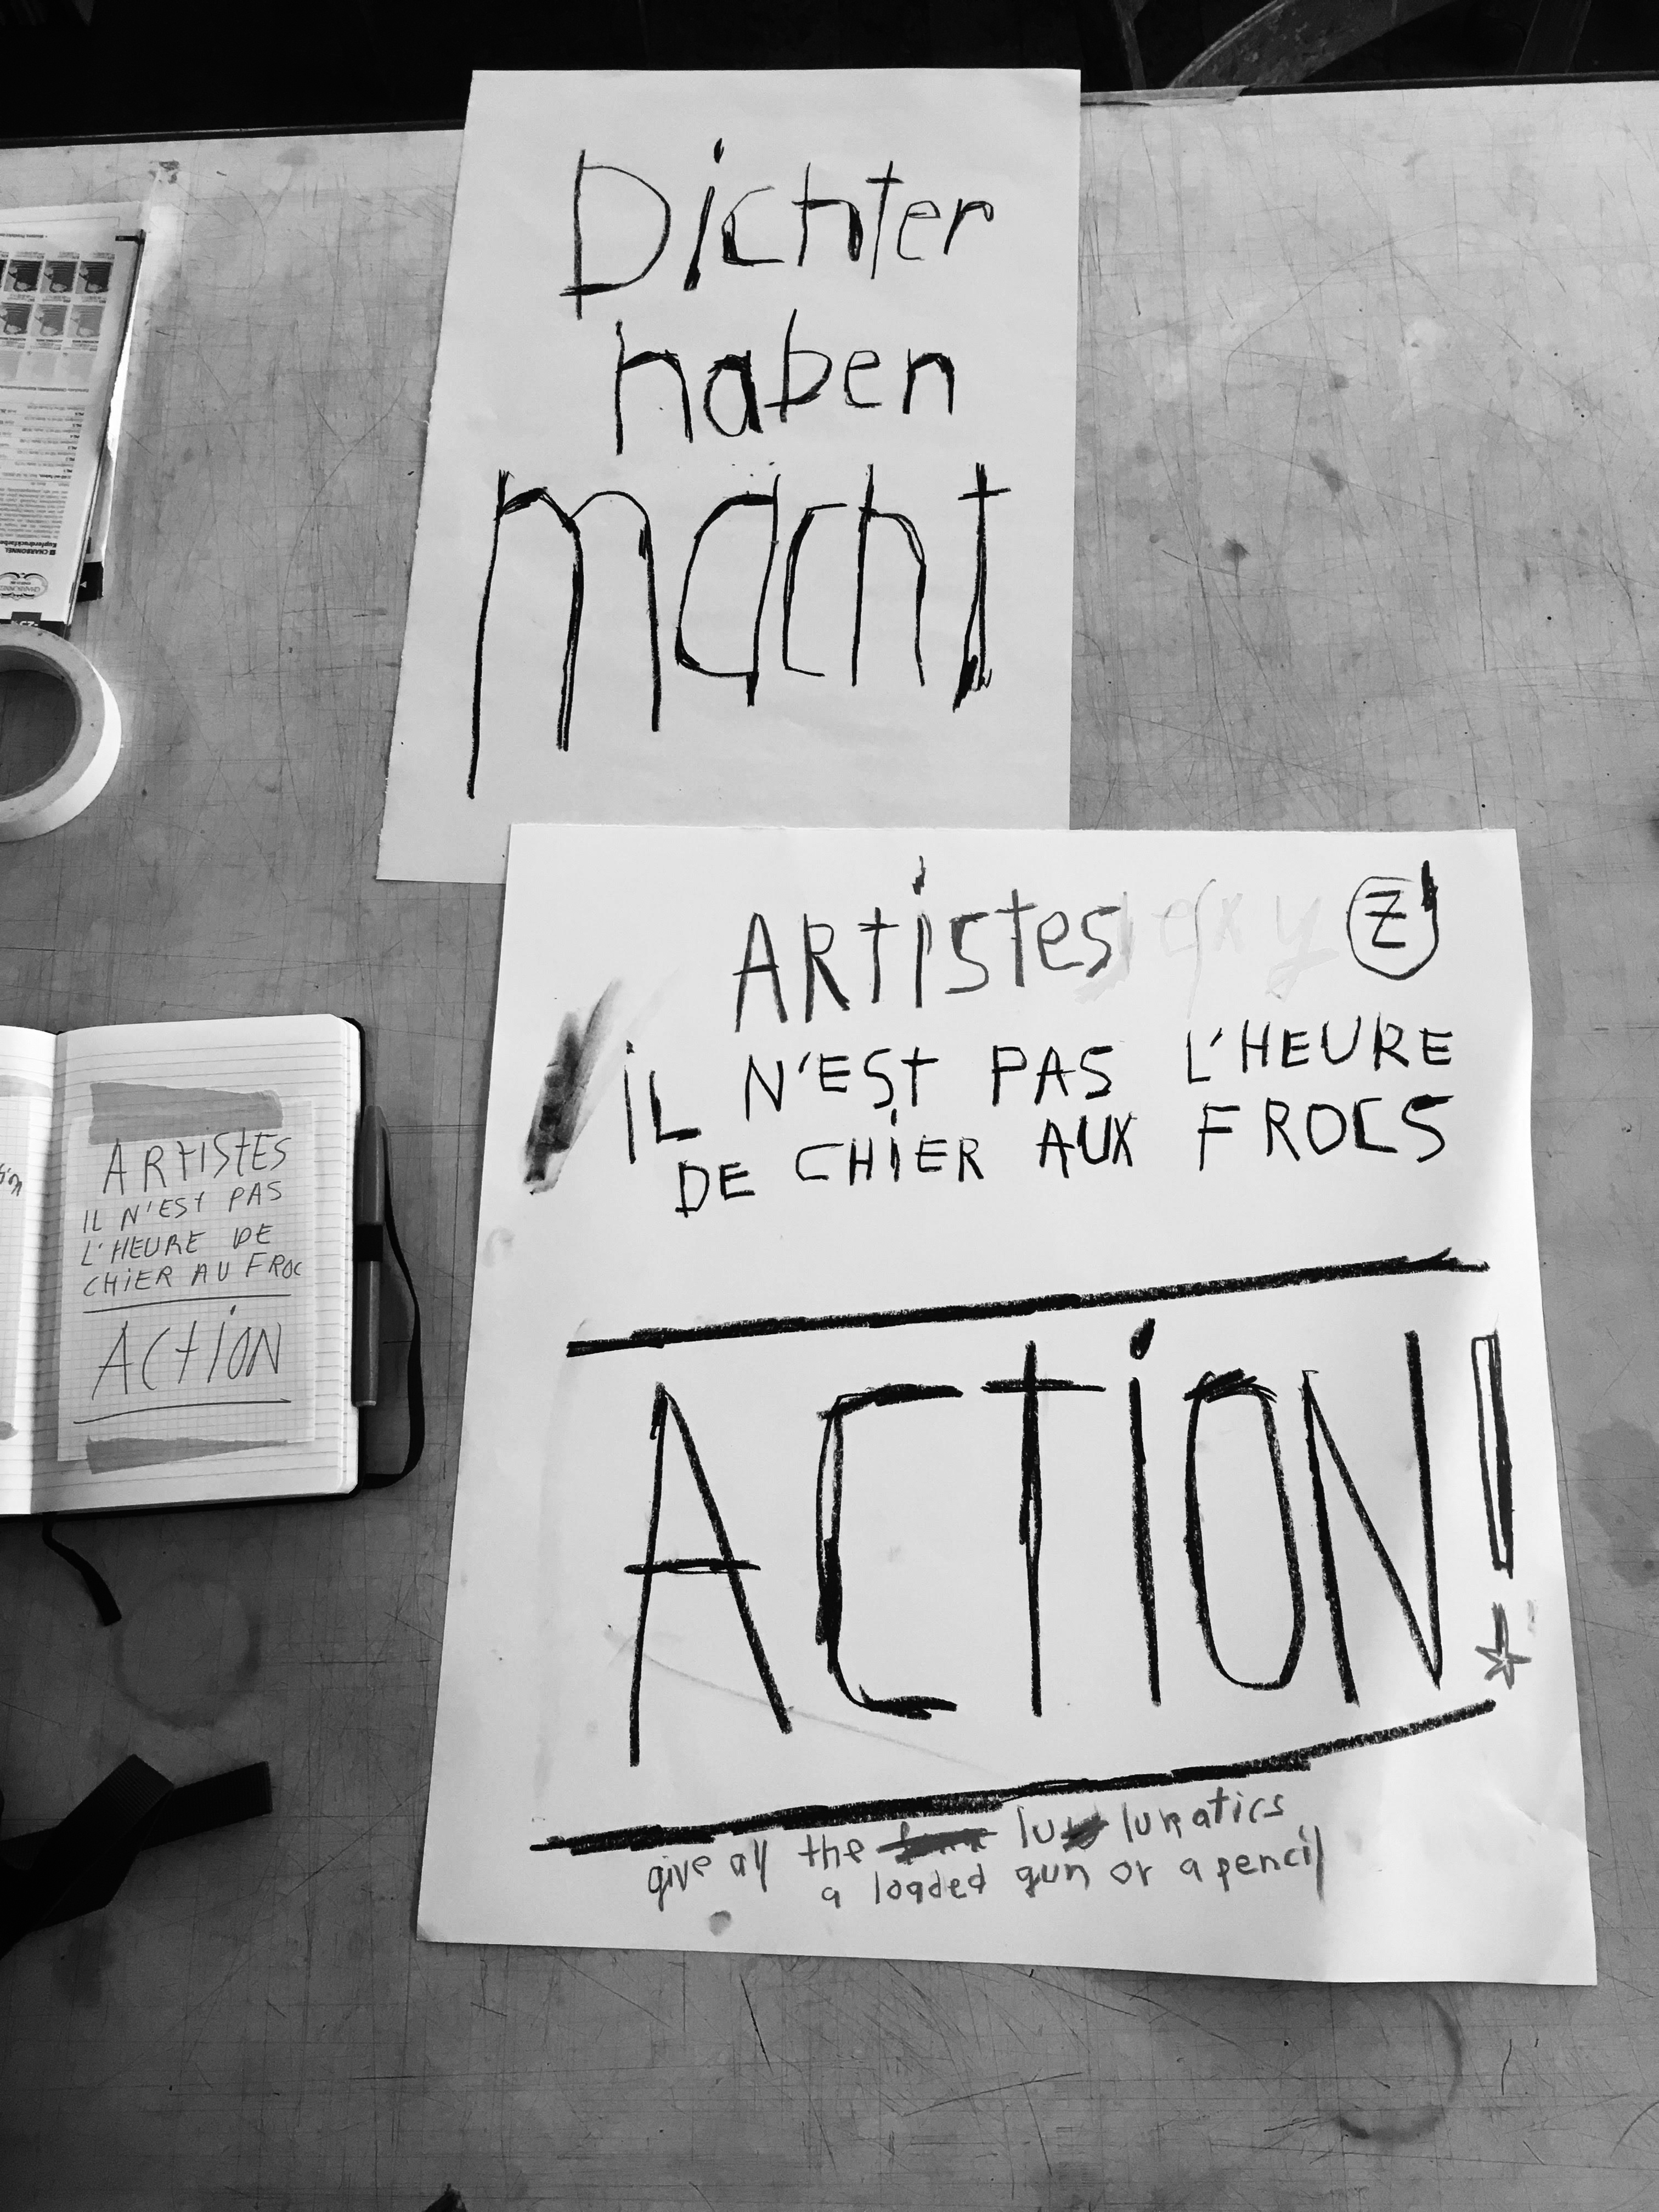 Dichter
haben
macht
ARtistes Z
iL N'ESt PAS L'HEURE
DE CHiER AUX FROCS
ACtiON!
give all the lunatics
a loaded gun or a pencil
ARtiStES
IL N'ESt PAS
L'HEURE DE
CHiER AU FROC
ACtiON
CHARBONNEL